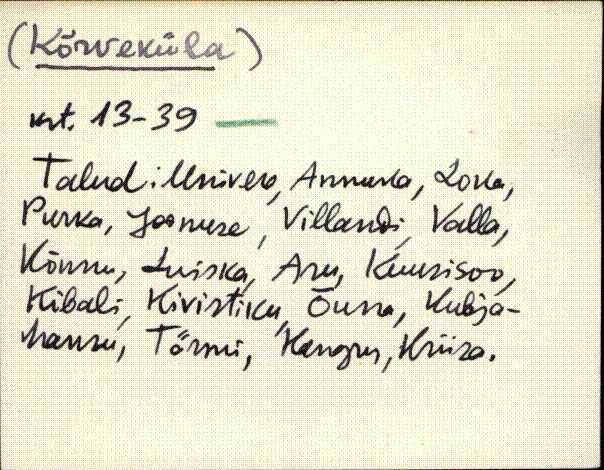 (Kõrveküla)
krt. 13-39
Talud: Univer, Annuka, Loka,
Purka, Joonuse, Villandi, Valla,
Kõnnu, Luiska, Aru, Kuusisoo,
Kibali, Kivistiku, Õuna, Kubja-
hansu, Tõrmi, Kangru, Kriisa.